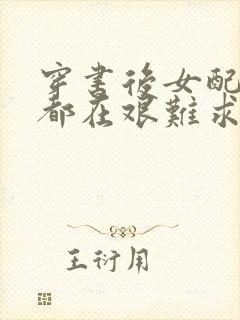 穿书后女配
都在艰难求
王衍用